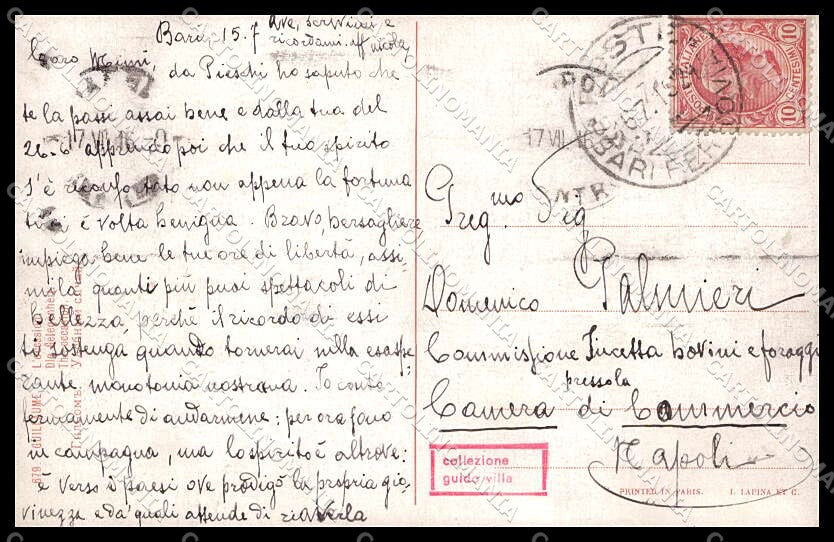 Bari 15.7
Ave, scrivimi e
ricordami. aff nicola
Caro Mimì,
da Pieschi ho saputo che
te la passi assai bene e dalla tua del
26-6 apprendo poi che il tuo spirito
s'è riconfortato non appena la fortuna
ti si è volta benigna. Bravo, bersagliere
impiega bene le tue ore di libertà, assi-
mila quanti più puoi spettacoli di
bellezza, perchè il ricordo di essi
ti sostenga quando tornerai nella esaspe-
rante monotonia nostrana. Io conto
fermamente di andarmene: per ora sono
in campagna, ma lo spirito è altrove:
è verso i paesi ove prodigò la propria gio-
vinezza e da' quali attende di riaverla
POSTE
17 VII
BARI
FERR
10
POSTE ITALIANE
CENTESIMI
10
Preg.mo Sig.
Domenico Palmieri
Commissione Incetta bovini e foraggi
pressola
Camera di Commercio
Napoli
collezione
guido villa
PRINTED IN PARIS. I. LAPINA ET C.
679. GUILLAUME
CARTOLINOMANIA